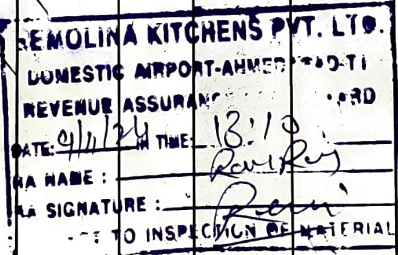 SEMOLINA KITCHENS PVT. LTD.
DOMESTIC AIRPORT-AHMEDABAD-T1
REVENUE ASSURANC
DATE: 9/11/24 IN TIME: 13:10
RA NAME :
RA SIGNATURE :
TO INSPECTION OF MATERIAL